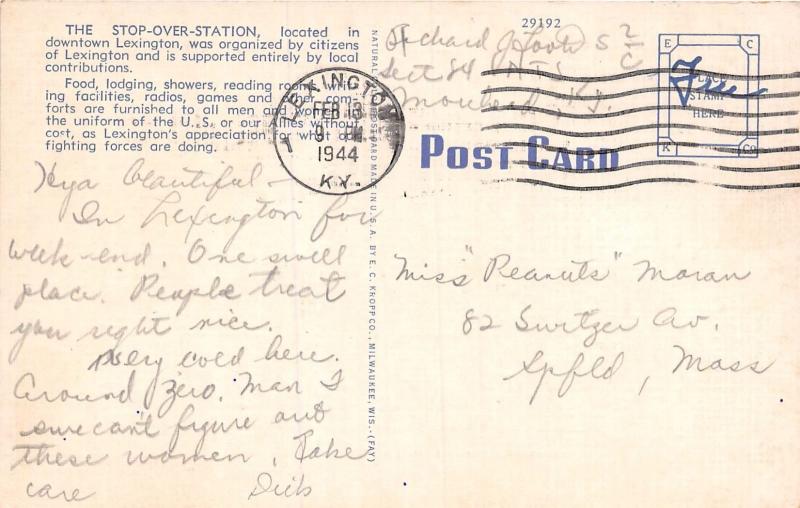 THE STOP-OVER-STATION, located in
downtown Lexington, was organized by citizens
of Lexington and is supported entirely by local
contributions.
Food, lodging, showers, reading room,
ing facilities, radios, games and other com-
forts are furnished to all men and women in
the uniform of the U. S. or our Allies without
cost, as Lexington's appreciation for what our
fighting forces are doing.
LEXINGTON
FEB 13
1944
KY.
Hya beautiful –
In Lexington for
week-end. One swell
place. People treat
you right nice.
Very cold here.
Around zero. Man I
sure can't figure out
these women. Take
care Dick
NATURAL POST CARD MADE IN U. S. A. BY E. C. KROPP CO., MILWAUKEE, WIS. (FAY)
29192
Richard J. S 2/c
Sect 84 N.T.S
Morehead, Ky.
E C
PLACE
STAMP
HERE
K Co
Free
POST CARD
Miss "Peanuts" Moran
82 Switzer Av.
Spfld, Mass